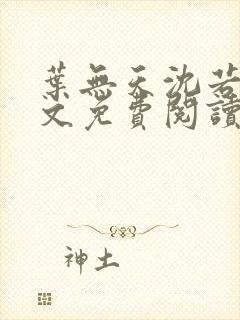 葉無天沈若
文免費閱讀
神土